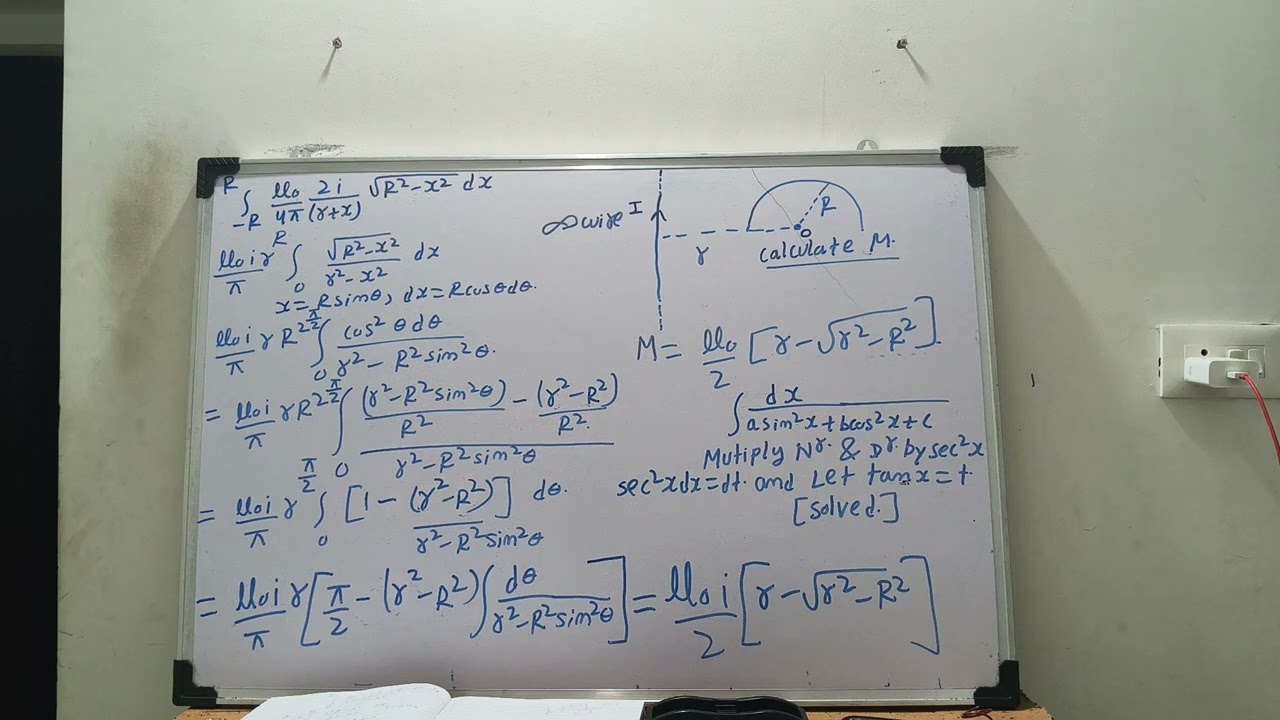 ∫_{-R}^{R} μ₀/4π 2i/(r+x) √(R²-x²) dx
μ₀i r/π ∫_0^R √(R²-x²)/(r²-x²) dx
x=Rsinθ, dx=Rcosθdθ.
μ₀i/π rR² ∫_0^{π/2} cos²θdθ/(r²-R²sin²θ).
= μ₀i/π rR² ∫_0^{π/2} [(r²-R²sin²θ)/R² - (r²-R²)/R².]/(r²-R²sin²θ)
= μ₀i/π r ∫_0^{π/2} [1-(r²-R²)]/(r²-R²sin²θ) dθ.
= μ₀i/π r[π/2-(r²-R²)∫dθ/(r²-R²sin²θ)] = μ₀i/2 [r-√(r²-R²)]
∞ wire I
R
O
r
calculate M.
M = μ₀/2 [r-√(r²-R²)].
∫dx/(asin²x+bcos²x+c)
Mutiply Nʳ. & Dʳ. by sec²x
sec²xdx=dt. and Let tanx=t.
[solved.]